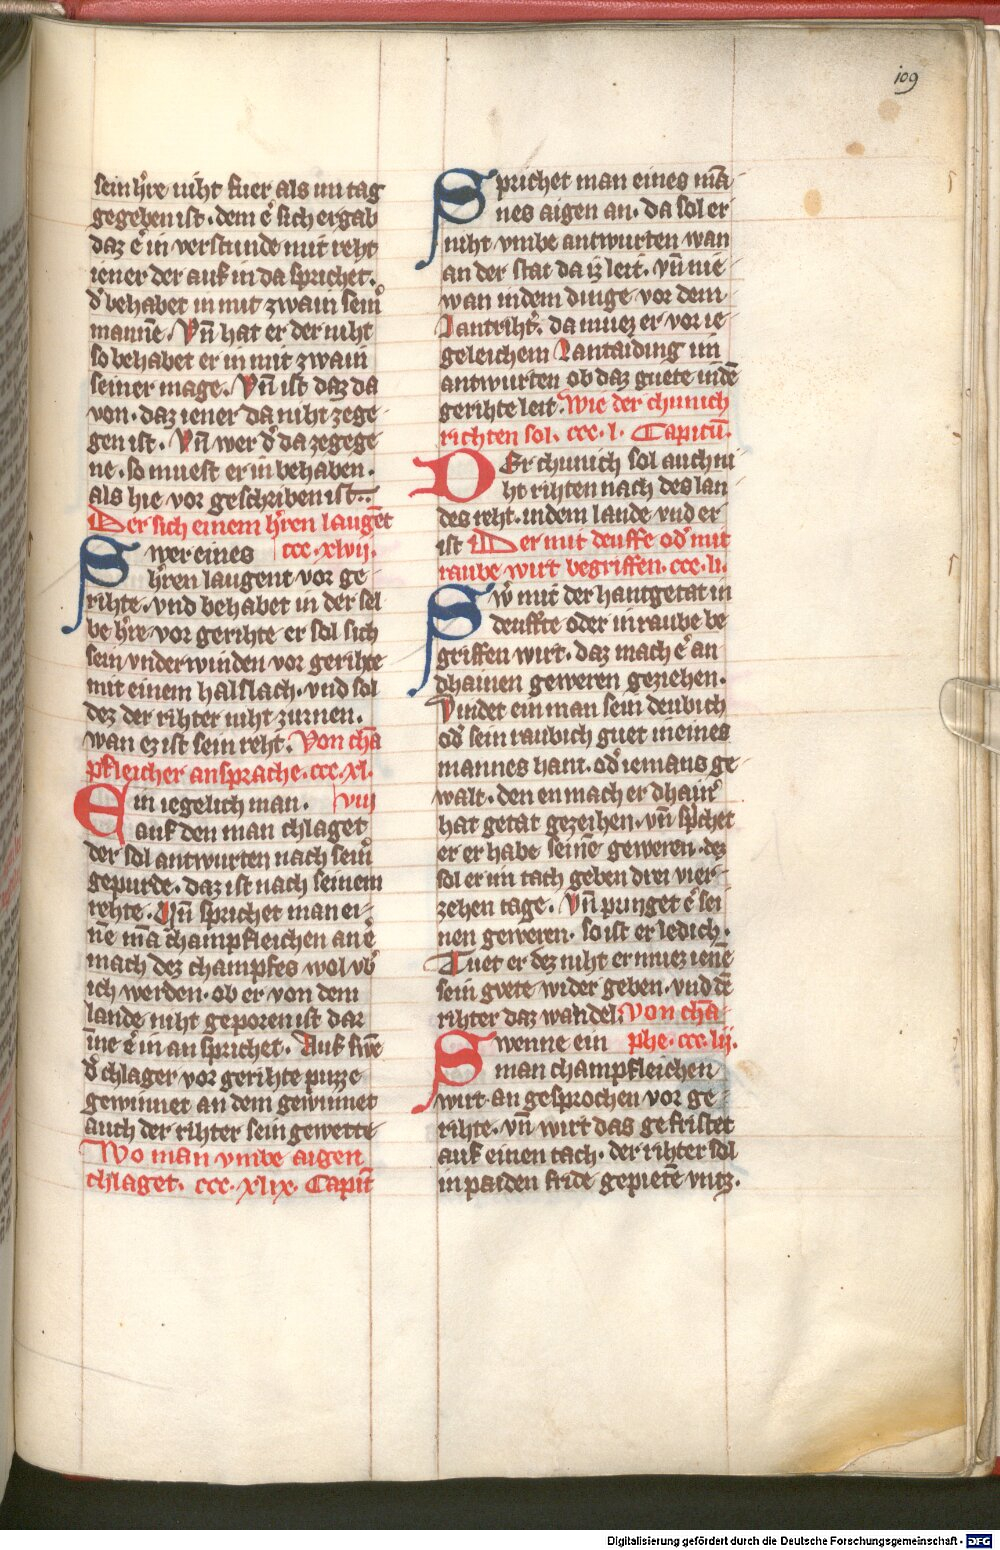 109
sein hr̄re niht fuer als im tag
gegeben ist · dem er̄ sich ergab
daz er̄ in verstunde mit reht
iener der auf in da sprichet ·
d᷑ behabet in mit zwain sein᷑
mann̄e · Vn̄ hat er der niht
so behabet er in mit zwain
seiner mage · Vn̄ ist daz da
von · daz iener da niht zege-
gen ist · Vn̄ wer d᷑ da zegege
ne · so muest er in behaben ·
als hie vor geschriben ist ·
Der sich einem hr̄ren laugēt
Swer eines ccc · xlvij ·
hr̄ren laugent vor ge-
rihte · vnd behabet in der sel
be hr̄re vor gerihte er sol sich
sein vnderwinden vor gerihte
mit einem halslach · vnd sol
dez der rihter niht zurnen ·
wan ez ist sein reht · Von chā
pfleicher ansprache · ccc · xl ·
Ein iegelich man · viij
auf den man chlaget
der sol antwurten nach sein᷑
gepurde · daz ist nach seinem
rehte · Vn̄ sprichet man ei-
nē mā champfleichen an e᷑
mach dez champfes wol vb᷑
ich werden · ob er von dem
lande niht geporen ist dar
īne e᷑ in an sprichet · Auf swē
d᷑ chlager vor gerihte puzze
gewinnet an dem gewinnet
auch der rihter sein gewette
Wo man vmbe aigen
chlaget · ccc · xlix · Capit̄
Sprichet man eines mā-
nes aigen an · da sol er
niht vmbe antwurten wan
an der stat da iz leit · vn̄ nie
wan in dem dinge vor dem
Lantriht᷑ · da muez er vor ie-
geleichem Lantaiding im
antwurten ob daz guete in dē
gerihte leit · Wie der chunich
richten sol · ccc · l · Capitū ·
Der chunich sol auch ni
ht rihten nach des lan
des reht · in dem lande vnd er
ist Der mit deuffe od᷑ mit
raube wirt begriffen · ccc · li ·
Sw᷑ mit der hantgetat in
deuffte oder in raube be
griffen wirt · daz mach e᷑ an
dhainen geweren geziehen ·
Vindet ein man sein deubich
od᷑ sein raubich guet in eines
mannes hant · od᷑ iemans ge
walt · den en mach er dhain᷑
hat getat gezeihen · vn̄ sp᷑chet
er er habe seinē geweren · dez
sol er im tach geben drei vier-
zehen tage · Vn̄ pringet e᷑ sei
nen geweren · so ist er ledich ·
Tuet er dez niht er muez ienē
sein gvete wider geben · vnd dē
rihter daz wandel · Von chā
Swenne ein phe · ccc · lij ·
man champfleichen
wirt an gesprochen vor ge-
rihte · vn̄ wirt das gefristet
auf einen tach · der rihter sol
in paiden fride gepietē vntz ·
Digitalisierung gefördert durch die Deutsche Forschungsgemeinschaft - DFG